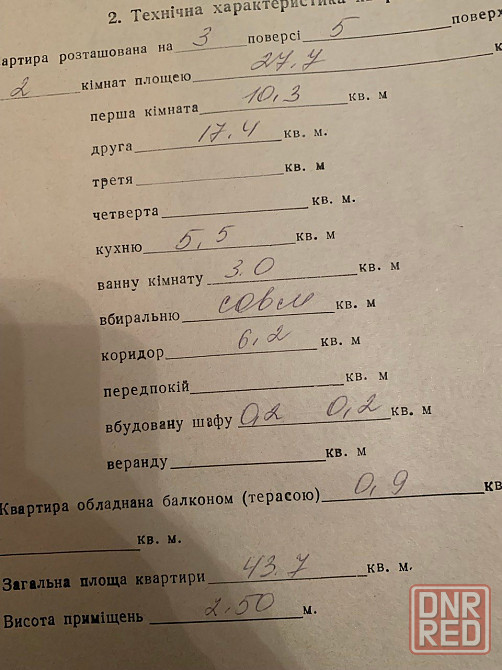 2. Технічна характеристика
артира розташована на 3 поверсі 5 поверх
2 кімнат площею 27.7 к
перша кімната 10,3 кв. м
друга 17,4 кв. м.
третя кв. м
четверта кв. м.
кухню 5,5 кв. м
ванну кімнату 3.0 кв. м
вбиральню совм кв. м
коридор 6,2 кв. м
передпокій кв. м
вбудовану шафу 0,2 0,2 кв. м
веранду кв. м
Квартира обладнана балконом (терасою) 0,9 кв
кв. м.
Загальна площа квартири 43.7 кв. м.
Висота приміщень 2.50 м.
DNR
RED